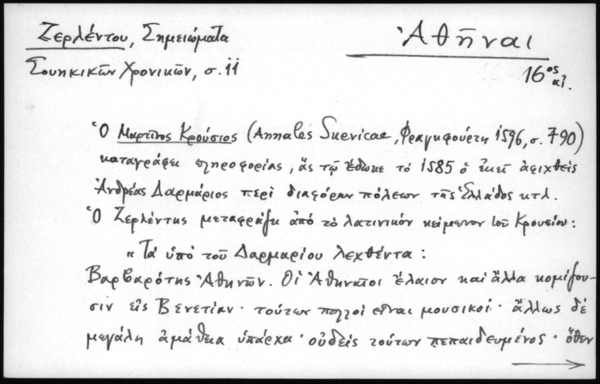 Ζερλέντου, Σημειώματα
Σουηκικῶν Χρονικῶν, σ. 11
Ἀθῆναι
16ος αἰ.
Ὁ Μαρτῖνος Κρούσιος (Annales Suevicae, Φραγκφούρτη 1596, σ. 790)
καταγράφει πληροφορίας, ἃς τῷ ἔδωκε τὸ 1585 ὁ ἐκεῖ ἀφιχθεὶς
Ἀνδρέας Δαρμάριος περὶ διαφόρων πόλεων τῆς Ἑλλάδος κτλ.
Ὁ Ζερλέντης μεταφράζει ἀπὸ τὸ λατινικὸν κείμενον τοῦ Κρουσίου:
«Τὰ ὑπὸ τοῦ Δαρμαρίου λεχθέντα:
Βαρβαρότης Ἀθηνῶν. Οἱ Ἀθηναῖοι ἔλαιον καὶ ἄλλα κομίζου-
σιν εἰς Βενετίαν· τούτων πολλοὶ εἶναι μουσικοί· ἄλλως δὲ
μεγάλη ἀμάθεια ὑπάρχει· οὐδεὶς τούτων πεπαιδευμένος· ὅθεν